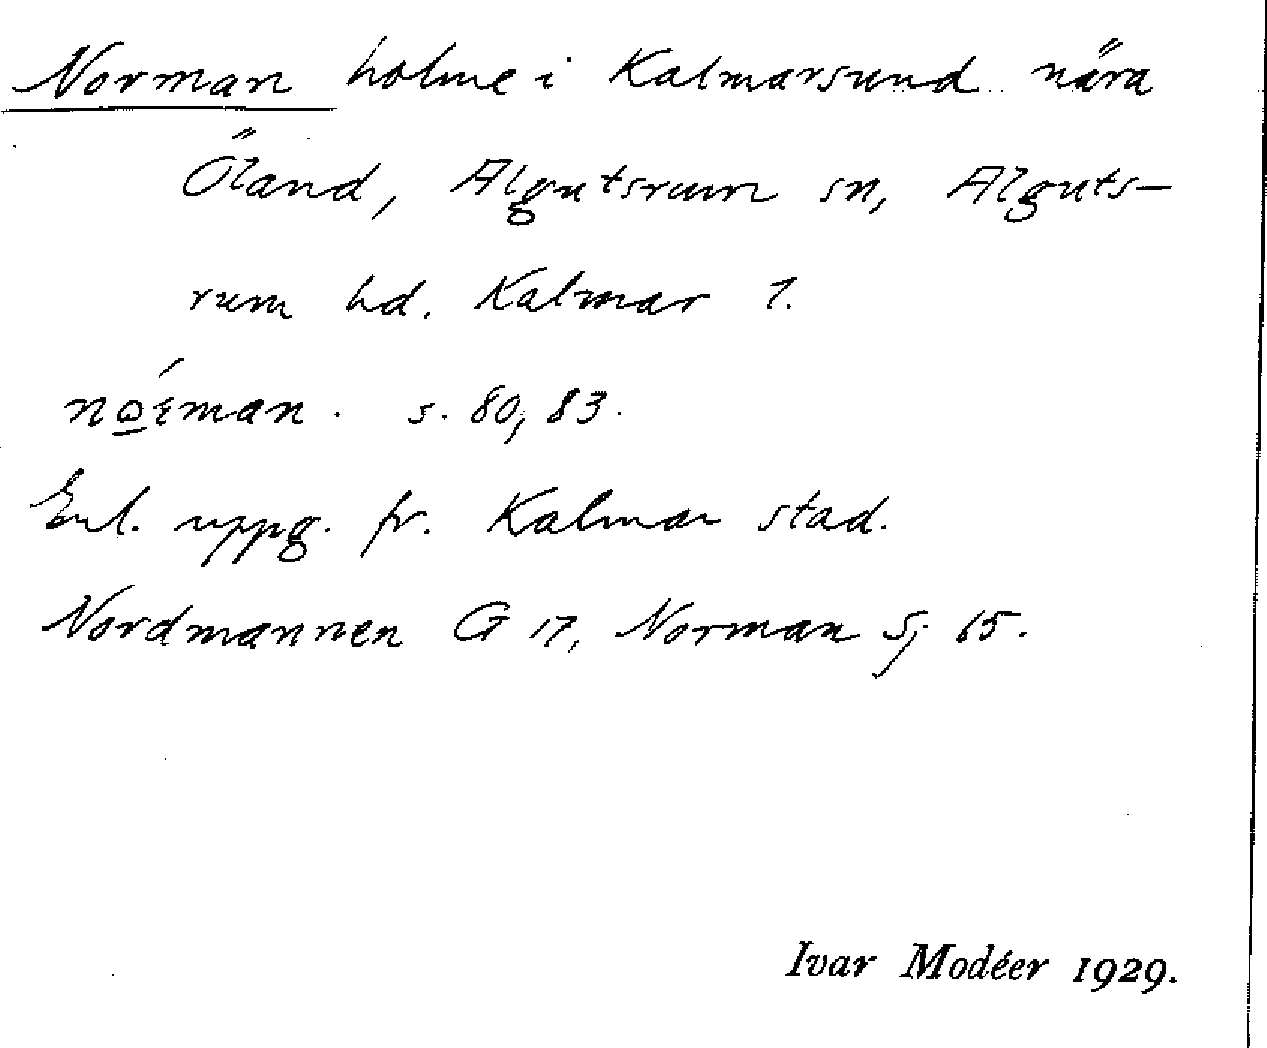 Norman holme i Kalmarsund nära
Öland, Algutsrum sn, Alguts-
rum hd. Kalmar l.
s. 80, 83.
Enl. uppg. fr. Kalmar stad.
Nordmannen G 17, Norman Sj 65.
Ivar Modéer 1929.